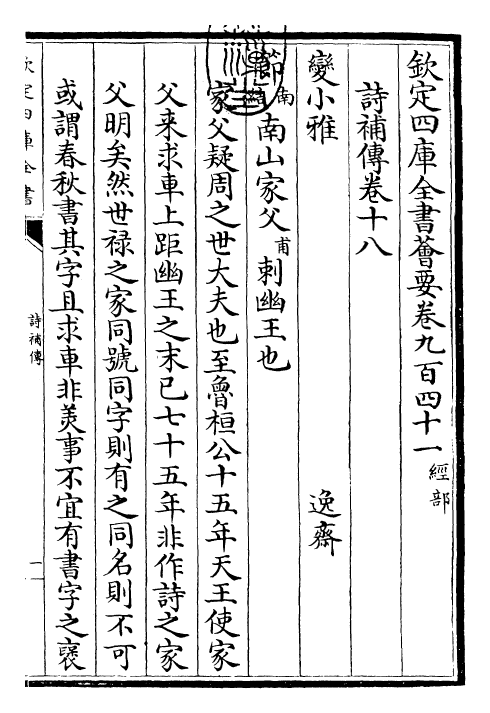 欽定四庫全書薈要卷九百四十一 經部
詩補傳卷十八
變小雅 逸齋
節 南山家父甫刺幽王也
家父疑周之世大夫也至魯桓公十五年天王使家
父来求車上距幽王之末已七十五年非作詩之家
父明矣然世禄之家同號同字則有之同名則不可
或謂春秋書其字且求車非美事不宜有書字之襃
欽定四庫全書
詩補傳